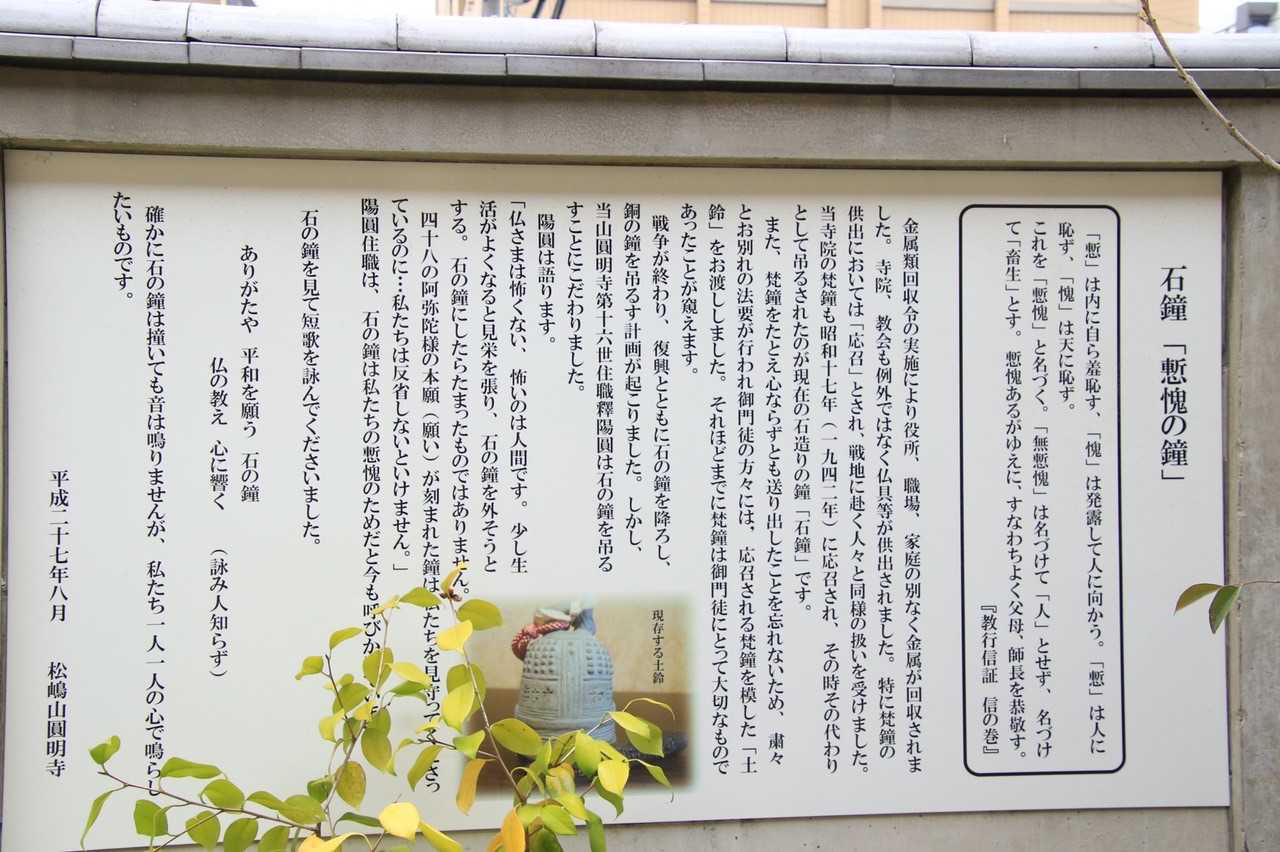 石鐘「慙愧の鐘」
「慙」は内に自ら羞恥す、「愧」は発露して人に向かう。「慙」は人に
恥ず、「愧」は天に恥ず。
これを「慙愧」と名づく。「無慙愧」は名づけて「人」とせず、名づけ
て「畜生」とす。慙愧あるがゆえに、すなわちよく父母、師長を恭敬す。
『教行信証 信の巻』
金属類回収令の実施により役所、職場、家庭の別なく金属が回収されま
した。寺院、教会も例外ではなく仏具等が供出されました。特に梵鐘の
供出においては「応召」とされ、戦地に赴く人々と同様の扱いを受けました。
当寺院の梵鐘も昭和十七年（一九四二年）に応召され、その時その代わり
として吊るされたのが現在の石造りの鐘「石鐘」です。
また、梵鐘をたとえ心ならずとも送り出したことを忘れないため、粛々
とお別れの法要が行われ御門徒の方々には、応召される梵鐘を模した「土
鈴」をお渡ししました。それほどまでに梵鐘は御門徒にとって大切なもので
あったことが窺えます。
戦争が終わり、復興とともに石の鐘を降ろし、
銅の鐘を吊るす計画が起こりました。しかし、
当山圓明寺第十六世住職釋陽圓は石の鐘を吊る
すことにこだわりました。
陽圓は語ります。
「仏さまは怖くない、怖いのは人間です。少し生
活がよくなると見栄を張り、石の鐘を外そうと
する。石の鐘にしたらたまったものではありません。
四十八の阿弥陀様の本願（願い）が刻まれた鐘は私たちを見守って
ているのに…私たちは反省しないといけません。」
陽圓住職は、石の鐘は私たちの慙愧のためだと今も呼びか
石の鐘を見て短歌を詠んでくださいました。
ありがたや 平和を願う 石の鐘
仏の教え 心に響く （詠み人知らず）
確かに石の鐘は撞いても音は鳴りませんが、私たち一人一人の心で鳴らし
たいものです。
平成二十七年八月 松嶋山圓明寺
現存する土鈴